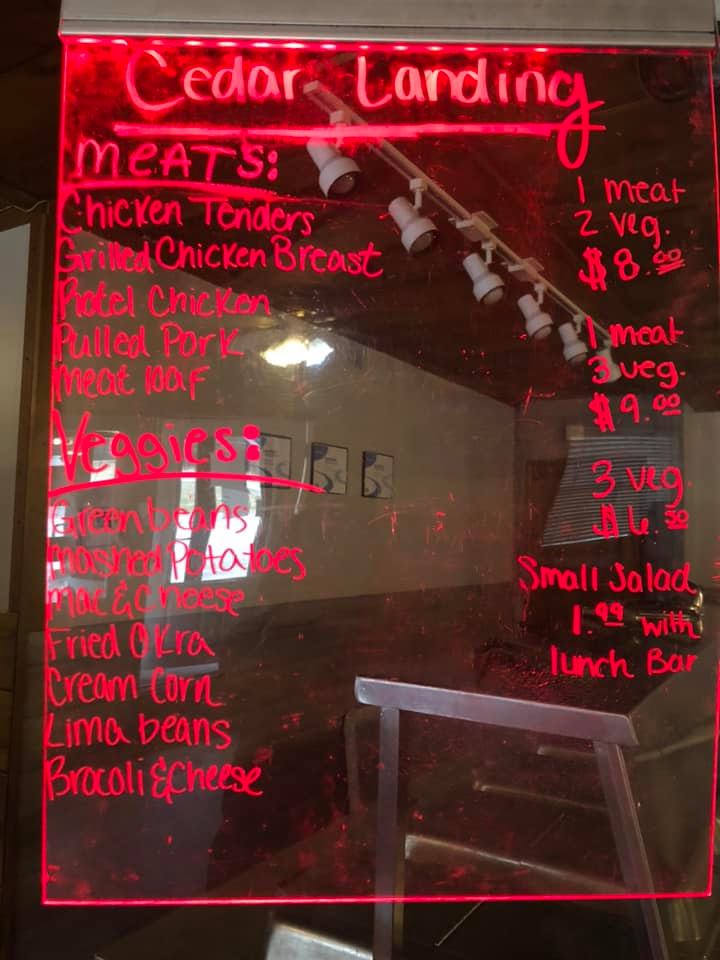 Cedar Landing
MEATS:
Chicken Tenders
Grilled Chicken Breast
Rotel Chicken
Pulled Pork
Meat loaf
Veggies:
Green beans
Mashed Potatoes
Mac & Cheese
Fried Okra
Cream Corn
Lima beans
Brocoli & Cheese
1 meat
2 veg.
$8.00
1 meat
3 veg.
$9.00
3 veg.
$6.50
Small Salad
1.99 with
lunch Bar